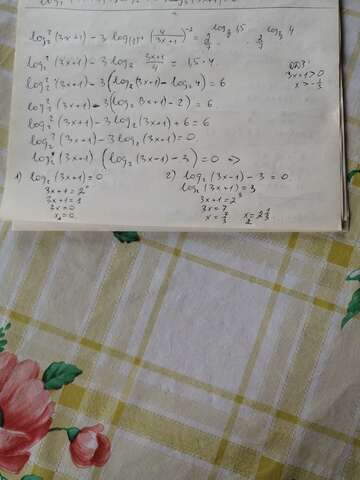 log₂²(3x+1) - 3 log₍₂₎₋₁ (4/(3x+1))⁻¹ = 2^(log₂ 1,5) · 2^(log₂ 4)
log₂²(3x+1) - 3 log₂ (3x+1)/4 = 1,5 · 4 3x+1>0
log₂²(3x+1) - 3(log₂(3x+1) - log₂4) = 6 x > -1/3
log₂²(3x+1) - 3(log₂(3x+1) - 2) = 6
log₂²(3x+1) - 3 log₂(3x+1) + 6 = 6
log₂²(3x+1) - 3 log₂(3x+1) = 0
log₂(3x+1) (log₂(3x+1) - 3) = 0 <=>
1) log₂(3x+1) = 0 2) log₂(3x+1) - 3 = 0
3x+1 = 2⁰ log₂(3x+1) = 3
3x+1 = 1 3x+1 = 2³
3x = 0 3x = 7
x = 0 x = 7/3 x = 2 1/3